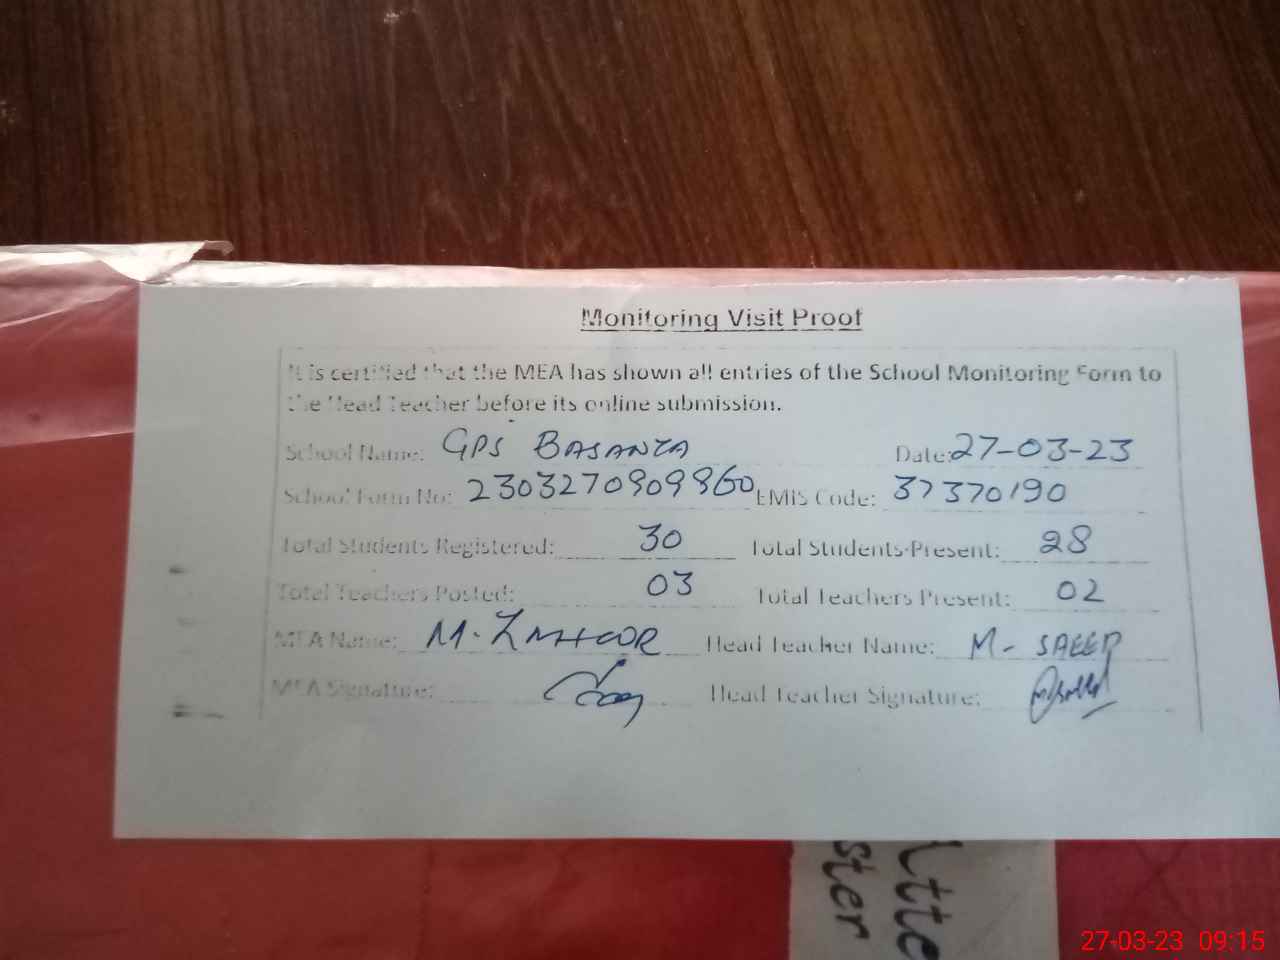 Monitoring Visit Proof
It is certified that the MEA has shown all entries of the School Monitoring Form to
the Head Teacher before its online submission.
School Name: GPS BASANTA Date: 27-03-23
School Form No: 2303270909860 EMIS Code: 37370190
Total Students Registered: 30 Total Students Present: 28
Total Teachers Posted: 03 Total Teachers Present: 02
MEA Name: M. ZAHOOR Head Teacher Name: M- SAEED
MEA Signature: Head Teacher Signature:
ster
27-03-23 09:15